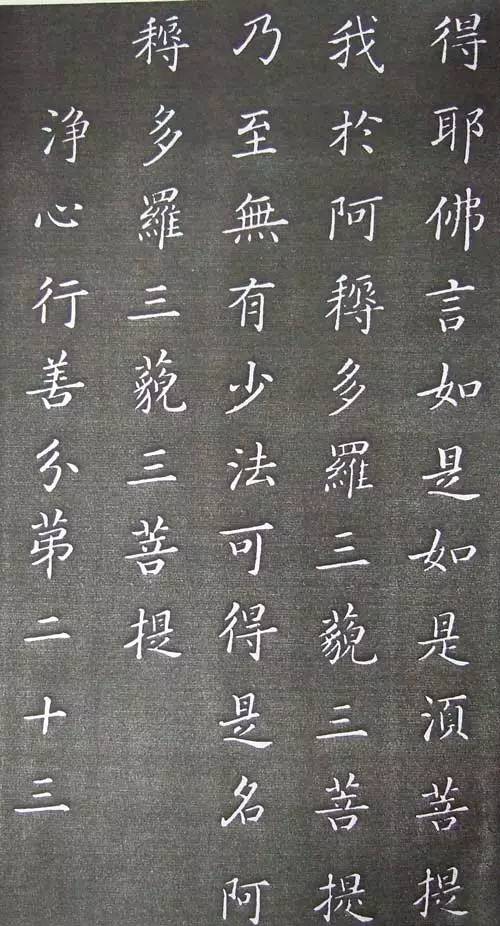 得耶佛言如是如是湏菩提
我於阿耨多羅三藐三菩提
乃至無有少法可得是名阿
耨多羅三藐三菩提
淨心行善分苐二十三